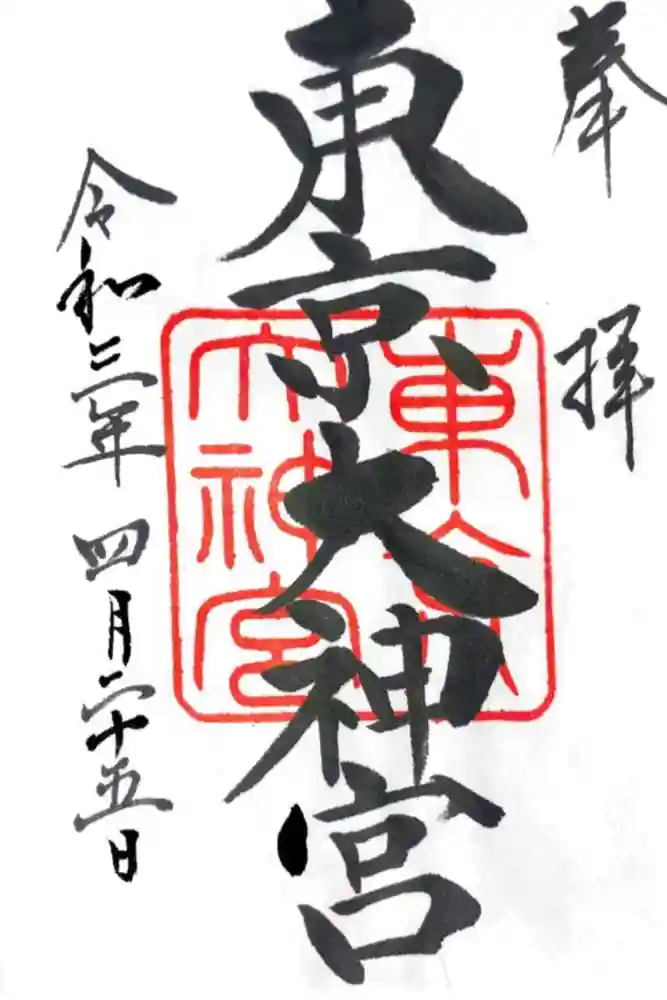 奉拝
東京大神宮
東京
大神宮
令和三年四月二十五日